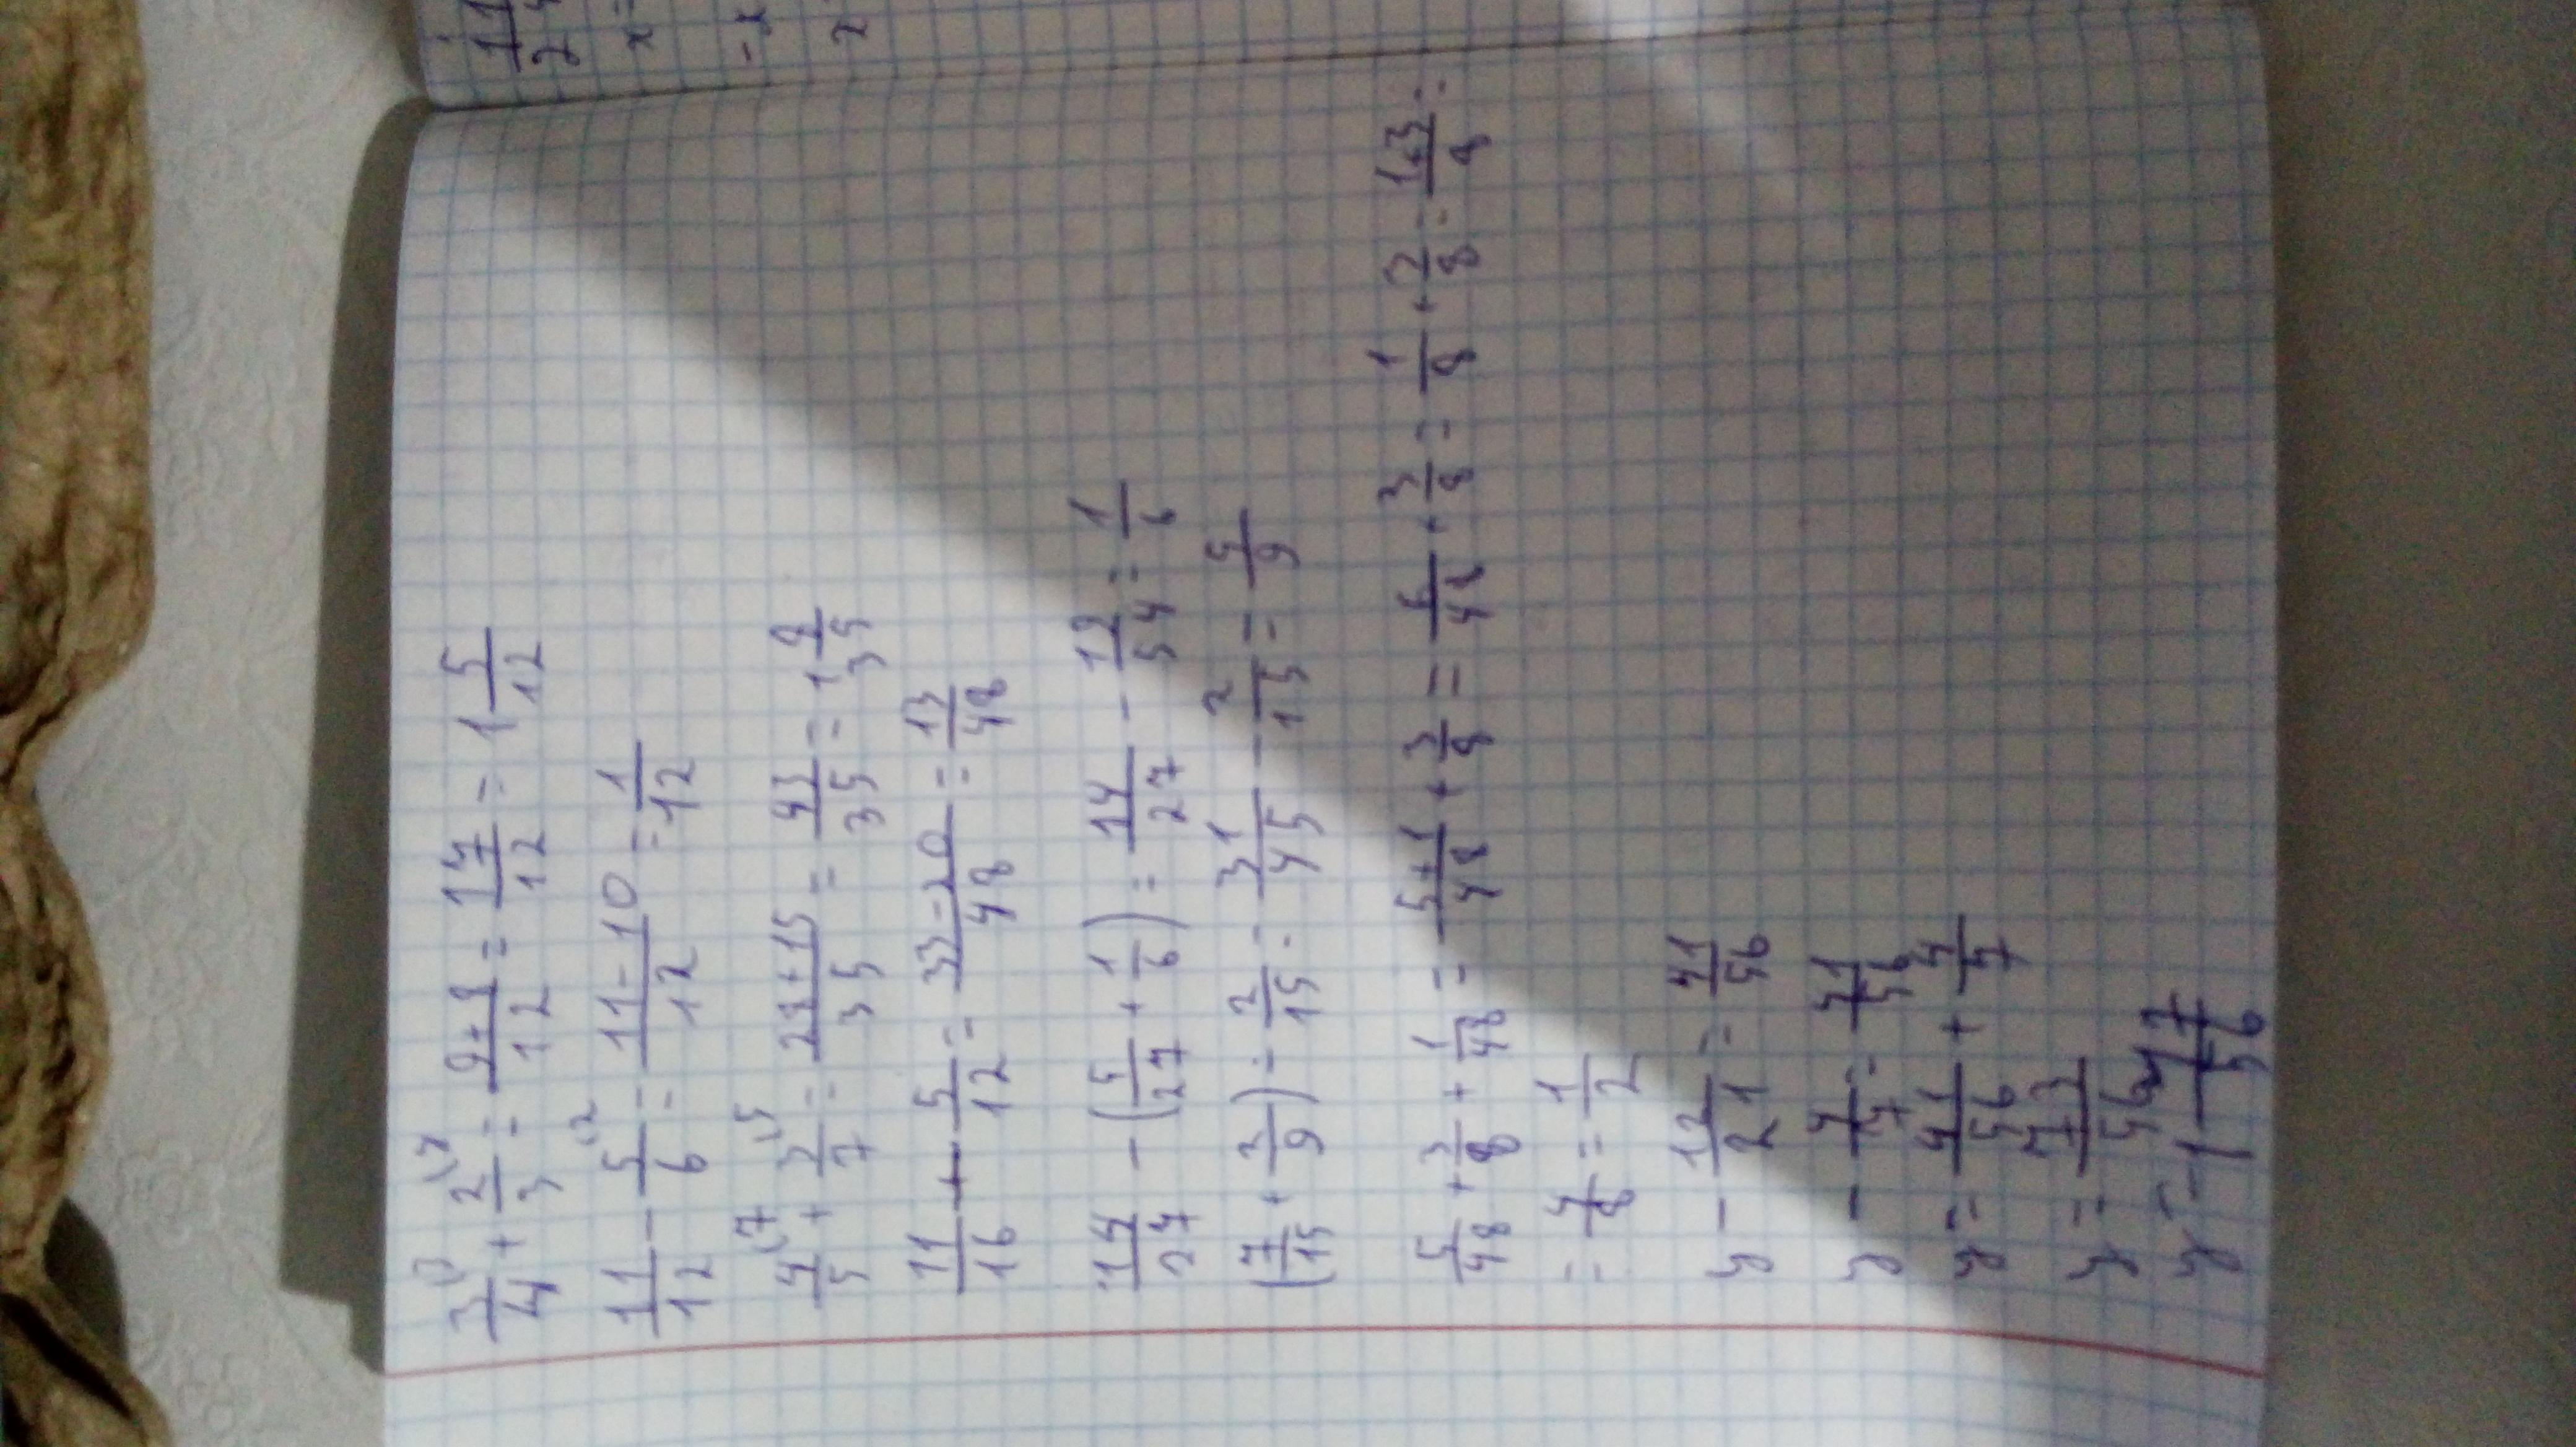 3/4 + 2/3 = 9+8/12 = 17/12 = 1 5/12
11/12 - 5/6 = 11-10/12 = 1/12
4/5 + 3/7 = 28+15/35 = 43/35 = 1 8/35
11/16 - 5/12 = 33-20/48 = 13/48
14/27 - (5/27 + 1/6) = 14/27 - 19/54 = 1/6
(7/15 + 2/9) - 2/15 = 31/45 - 2/15 = 5/9
5/48 + 3/8 + 1/48 = 5+1/48 + 3/8 = 6/48 + 3/8 = 1/8 + 3/8 = 1+3/8 =
= 4/8 = 1/2
y - 12/21 = 41/56
y - 4/7 = 41/56
y = 41/56 + 4/7
y = 73/56
y = 1 17/56